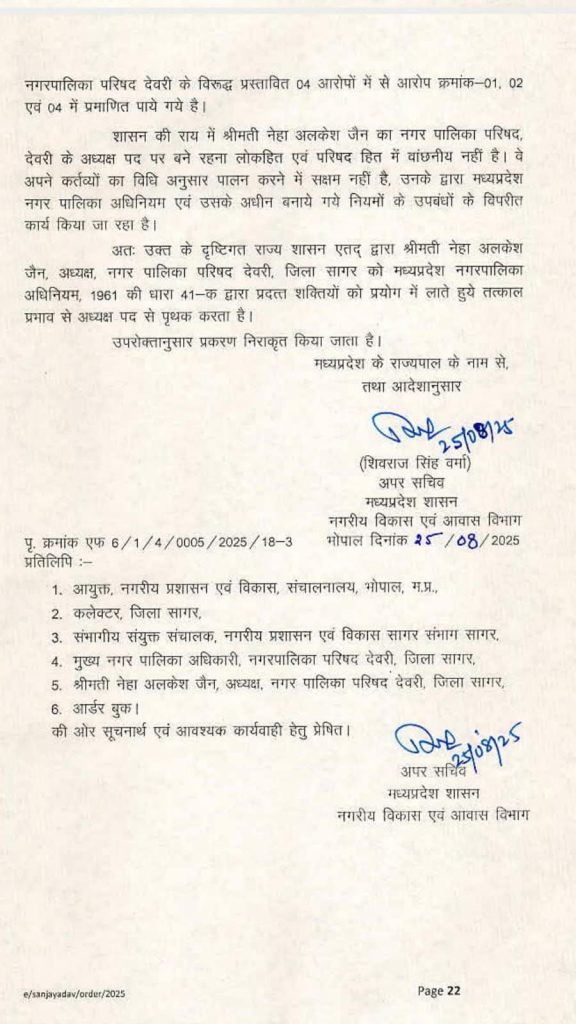 नगरपालिका परिषद देवरी के विरूद्ध प्रस्तावित 04 आरोपों में से आरोप क्रमांक–01, 02
एवं 04 में प्रमाणित पाये गये है।
शासन की राय में श्रीमती नेहा अलकेश जैन का नगर पालिका परिषद,
देवरी के अध्यक्ष पद पर बने रहना लोकहित एवं परिषद हित में वांछनीय नहीं है। वे
अपने कर्तव्यों का विधि अनुसार पालन करने में सक्षम नहीं है, उनके द्वारा मध्यप्रदेश
नगर पालिका अधिनियम एवं उसके अधीन बनाये गये नियमों के उपबंधों के विपरीत
कार्य किया जा रहा है।
अतः उक्त के दृष्टिगत राज्य शासन एतद् द्वारा श्रीमती नेहा अलकेश
जैन, अध्यक्ष, नगर पालिका परिषद देवरी, जिला सागर को मध्यप्रदेश नगरपालिका
अधिनियम, 1961 की धारा 41–क द्वारा प्रदत्त शक्तियों को प्रयोग में लाते हुये तत्काल
प्रभाव से अध्यक्ष पद से पृथक करता है।
उपरोक्तानुसार प्रकरण निराकृत किया जाता है।
मध्यप्रदेश के राज्यपाल के नाम से,
तथा आदेशानुसार
25/08/25
(शिवराज सिंह वर्मा)
अपर सचिव
मध्यप्रदेश शासन
नगरीय विकास एवं आवास विभाग
पृ. क्रमांक एफ 6/1/4/0005/2025/18–3 भोपाल दिनांक 25/08/2025
प्रतिलिपि :–
1. आयुक्त, नगरीय प्रशासन एवं विकास, संचालनालय, भोपाल, म.प्र.,
2. कलेक्टर, जिला सागर,
3. संभागीय संयुक्त संचालक, नगरीय प्रशासन एवं विकास सागर संभाग सागर,
4. मुख्य नगर पालिका अधिकारी, नगरपालिका परिषद देवरी, जिला सागर,
5. श्रीमती नेहा अलकेश जैन, अध्यक्ष, नगर पालिका परिषद देवरी, जिला सागर,
6. आर्डर बुक।
की ओर सूचनार्थ एवं आवश्यक कार्यवाही हेतु प्रेषित।
25/08/25
अपर सचिव
मध्यप्रदेश शासन
नगरीय विकास एवं आवास विभाग
e/sanjayadav/order/2025 Page 22